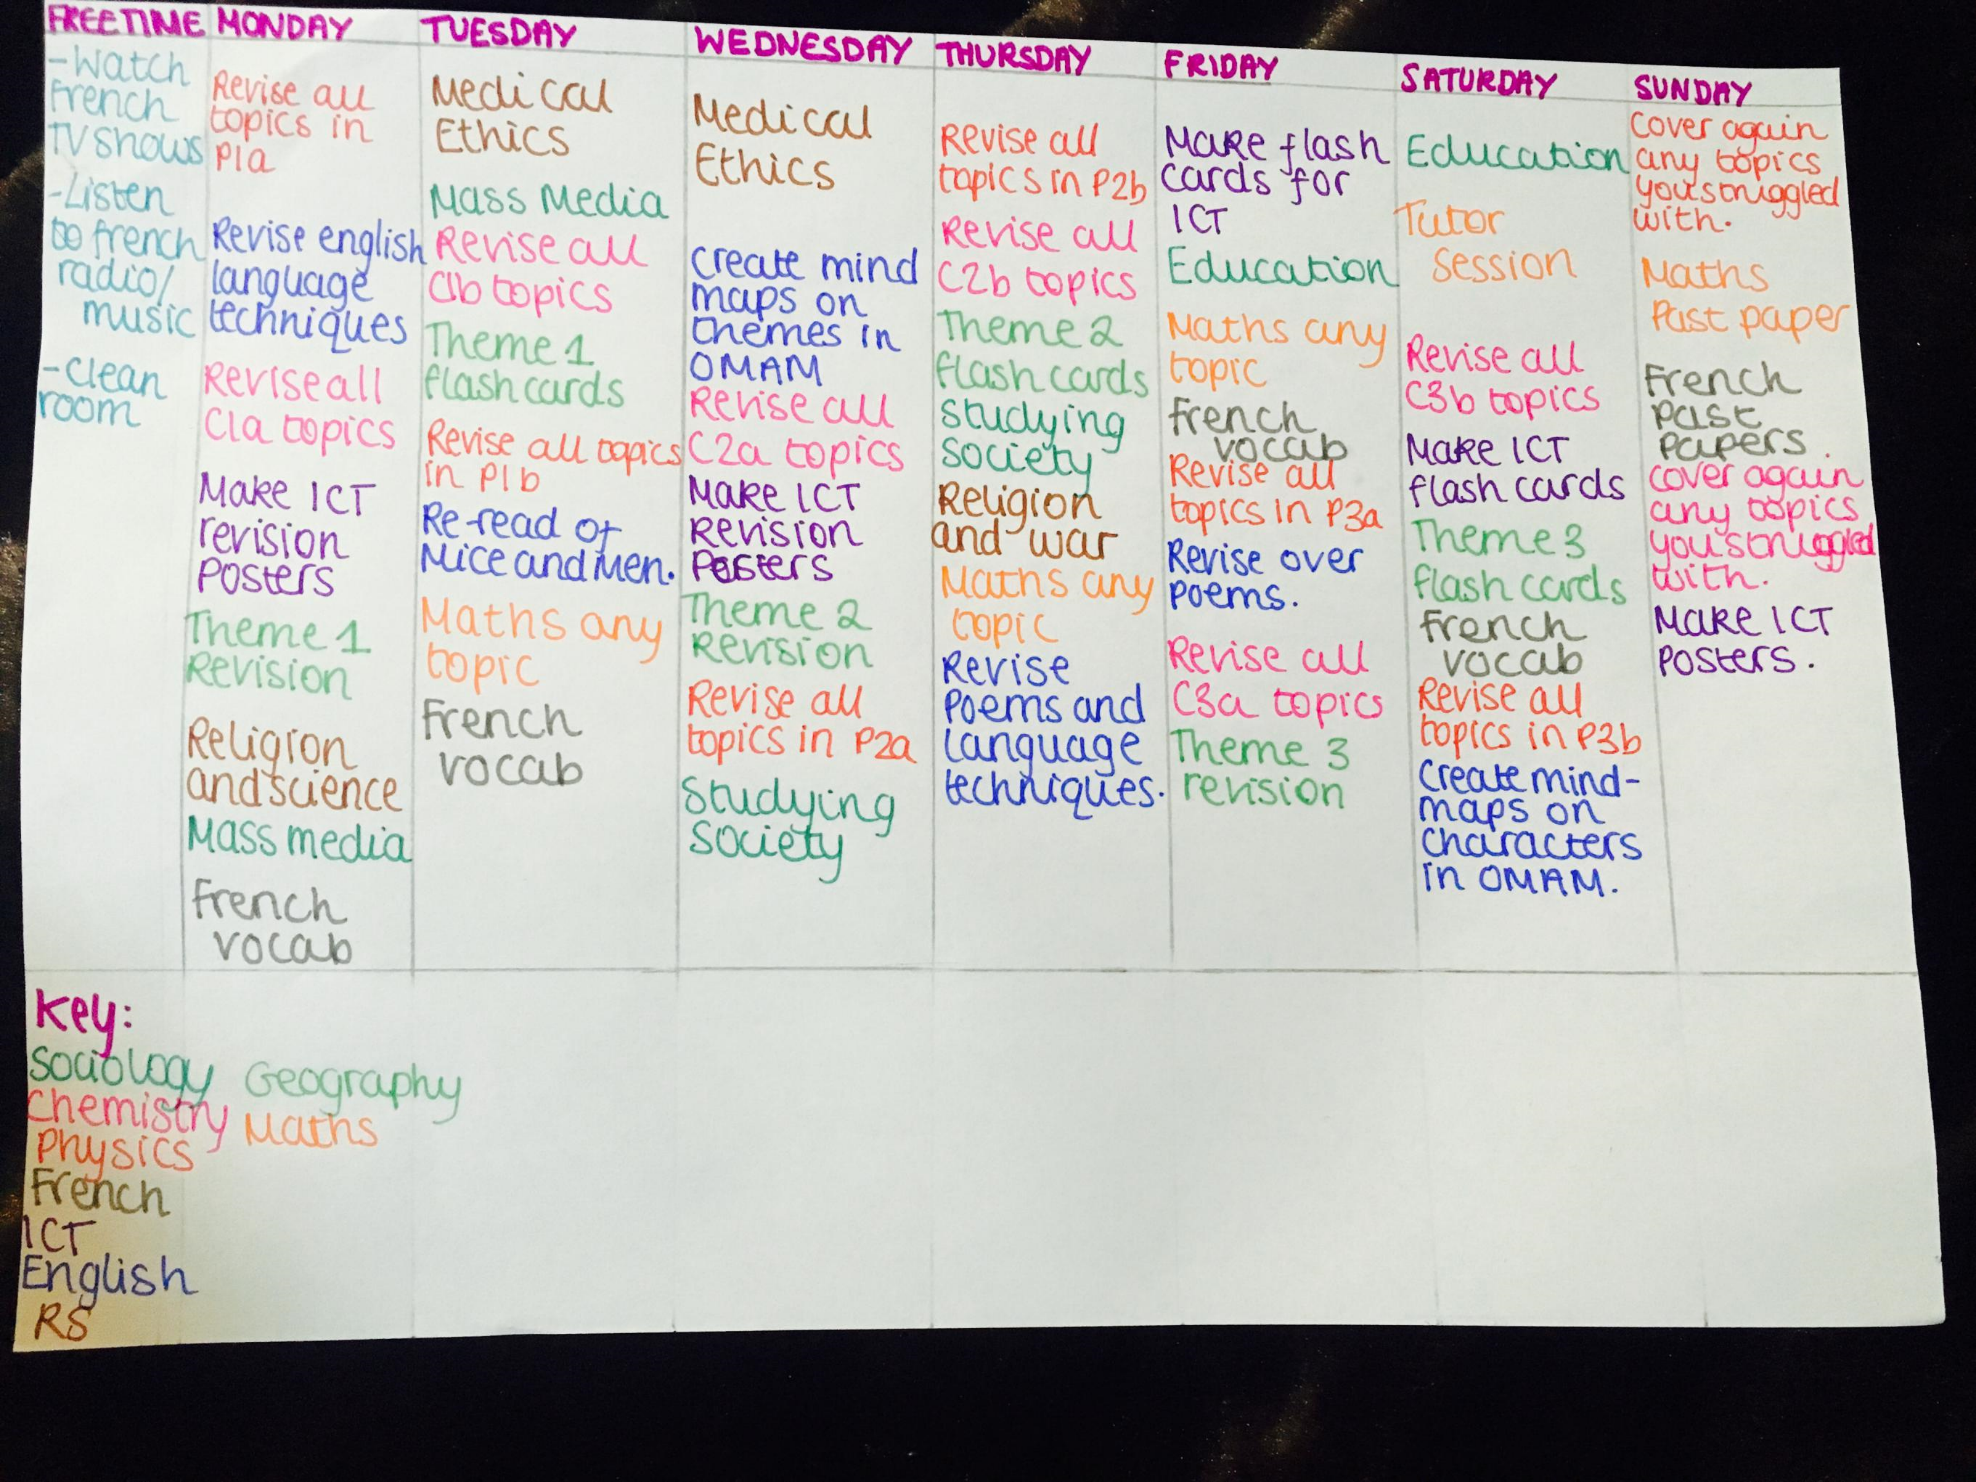 FREETIME
-Watch
French
TV shows
-Listen
to french
radio/
music
-clean
room
MONDAY
Revise all
topics in
P1a
Revise english
language
techniques
Revise all
C1a topics
Make ICT
revision
Posters
Theme 1
Revision
Religion
and science
Mass media
French
vocab
TUESDAY
Medical
Ethics
Mass Media
Revise all
C1b topics
Theme 1
flash cards
Revise all topics
in P1b
Re-read of
Mice and Men.
Maths any
topic
French
vocab
WEDNESDAY
Medical
Ethics
create mind
maps on
themes in
OMAM
Revise all
C2a topics
Make ICT
Revision
Posters
Theme 2
Revision
Revise all
topics in P2a
Studying
society
THURSDAY
Revise all
topics in P2b
Revise all
C2b topics
Theme 2
flash cards
studying
society
Religion
and war
Maths any
topic
Revise
Poems and
Language
techniques.
FRIDAY
Make flash
cards for
ICT
Education
Maths any
topic
French
vocab
Revise all
topics in P3a
Revise over
poems.
Revise all
C3a topics
Theme 3
revision
SATURDAY
Education
Tutor
Session
Revise all
C3b topics
Make ICT
flash cards
Theme 3
flash cards
French
vocab
Revise all
topics in P3b
Create mind-
maps on
characters
in OMAM.
SUNDAY
Cover again
any topics
you struggled
with.
Maths
Past paper
French
past
papers.
cover again
any topics
you struggled
with.
Make ICT
posters.
Key:
Sociology Geography
Chemistry Maths
Physics
French
ICT
English
RS